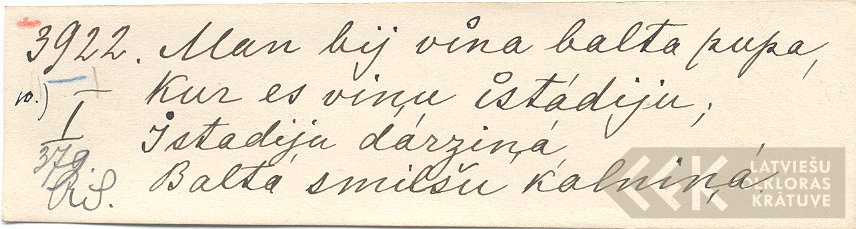 3922. Man bij vina balta pupa,
10.) Kur es viņu istádiju;
I Istadiju dárziņá
379 Baltá smilšu kalniņá
LATVIEŠU
FOLKLORAS
KRĀTUVE